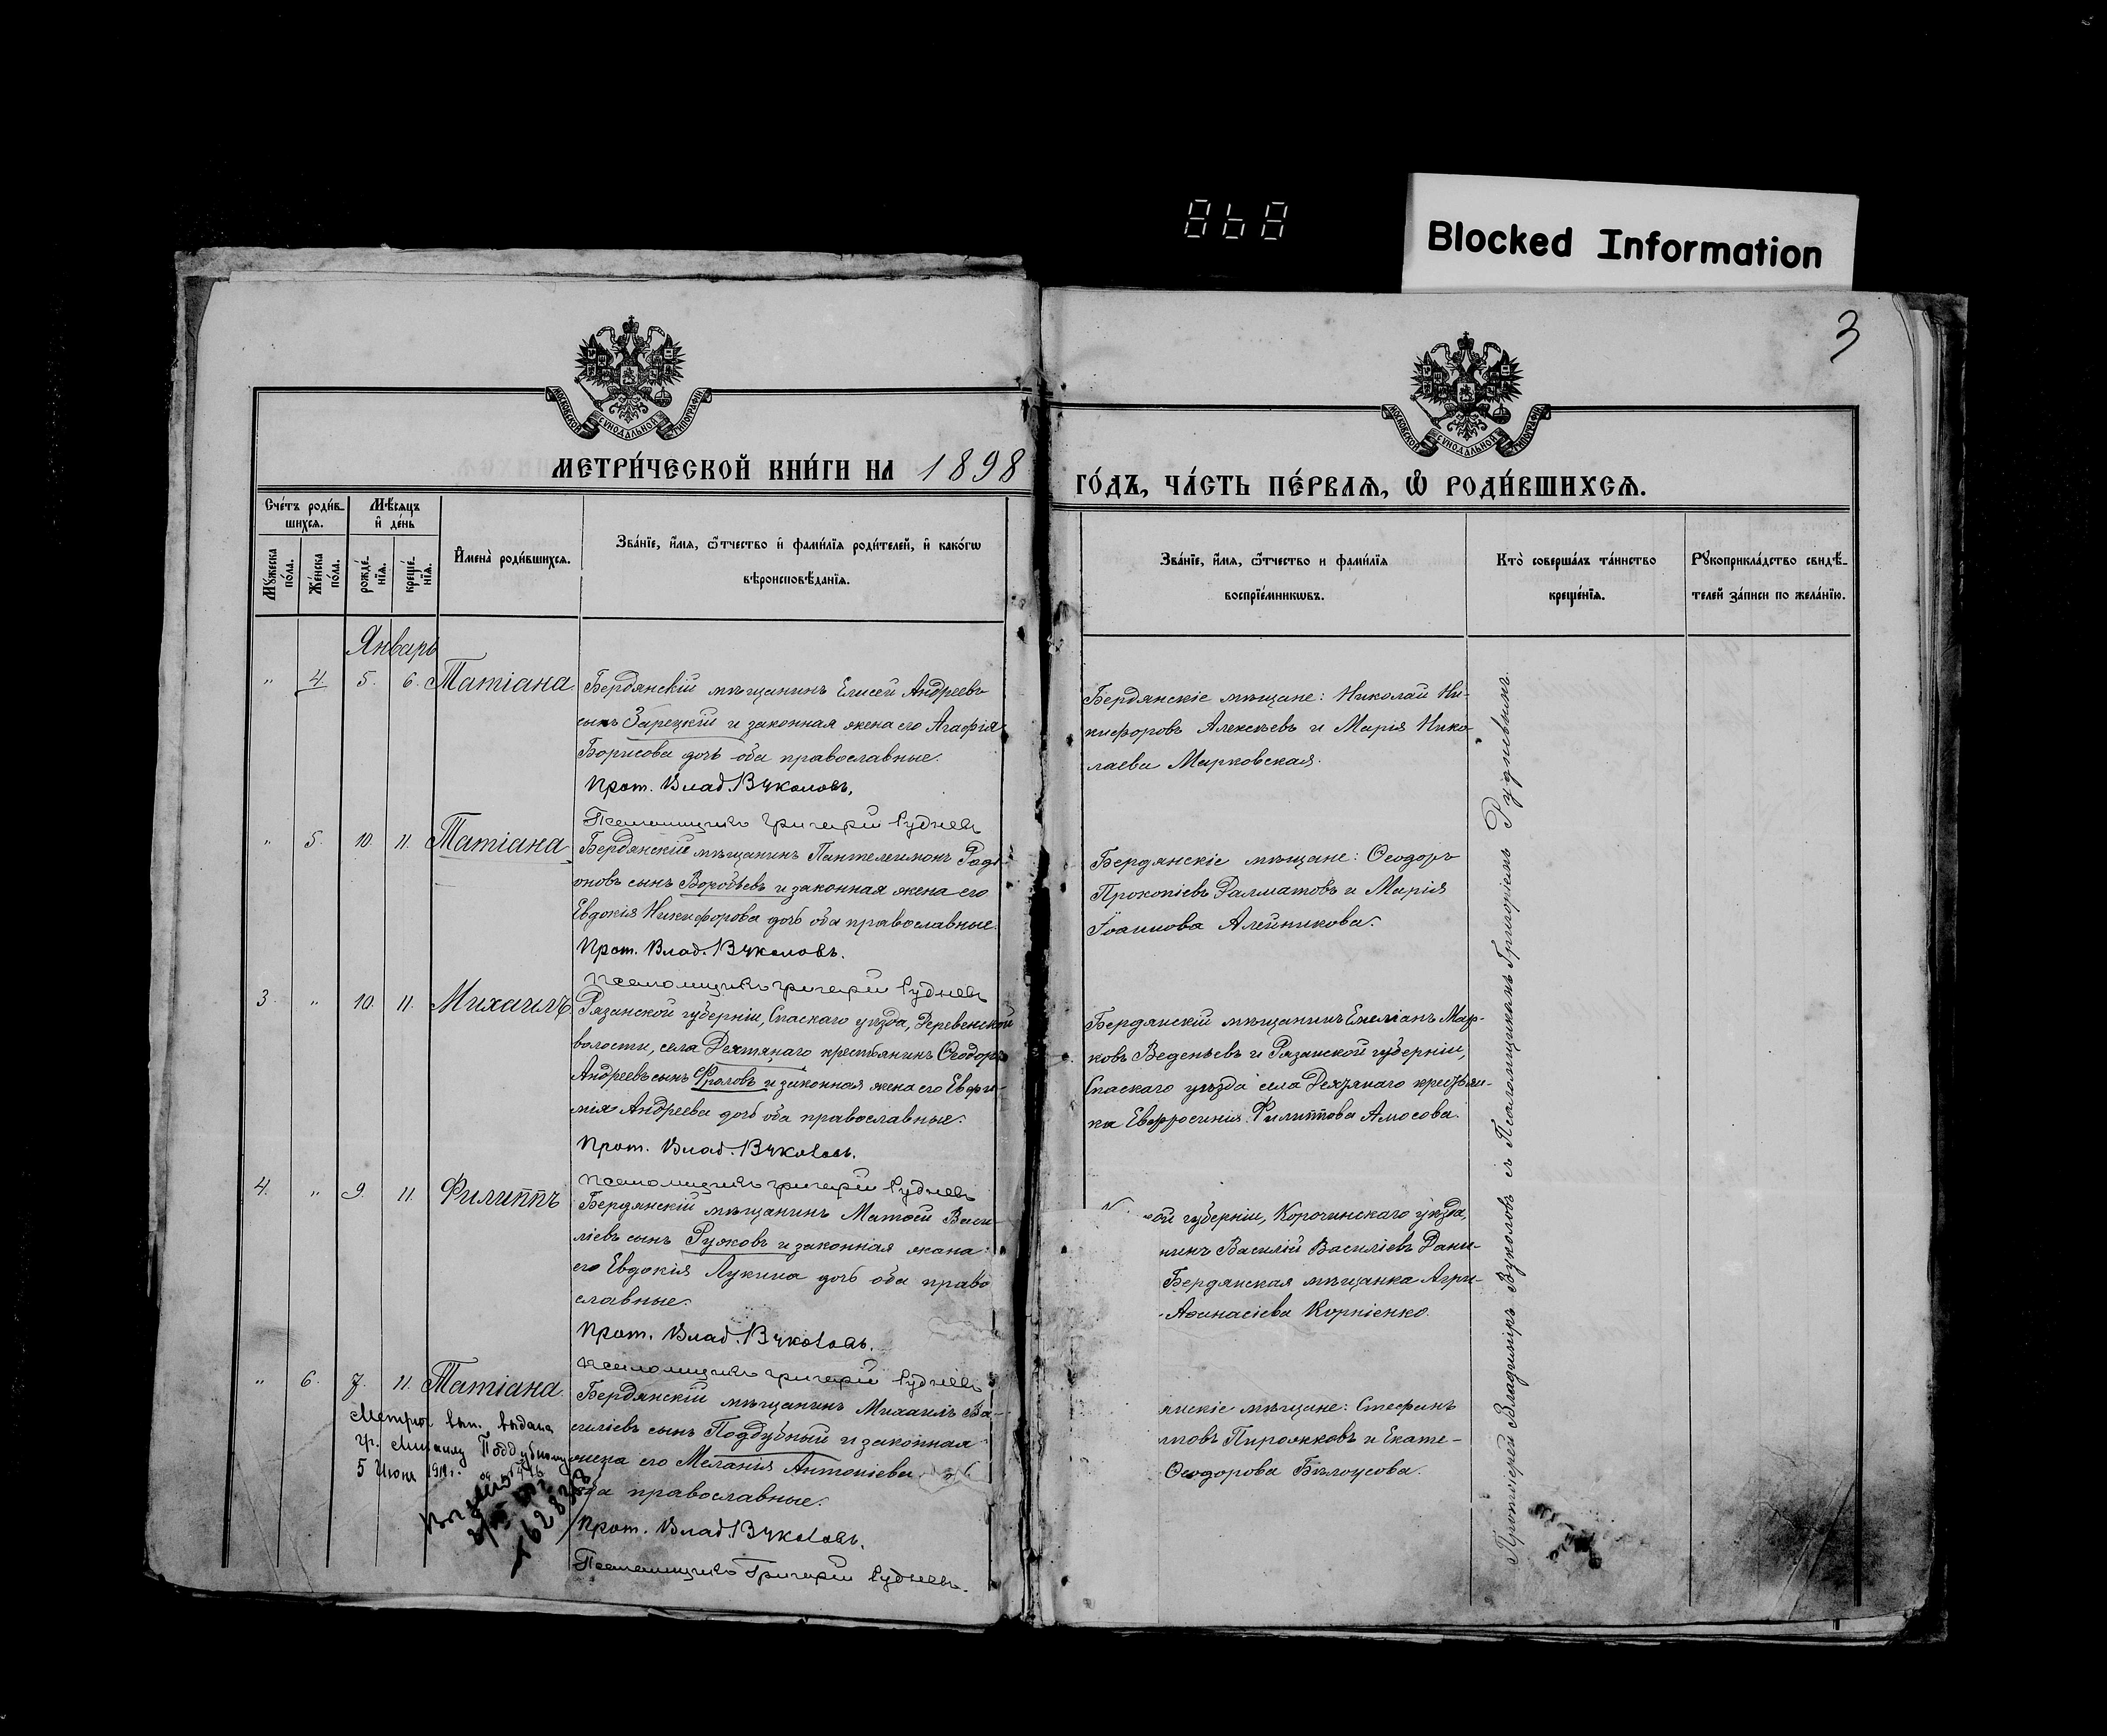 868
Blocked Information
3
МОСКОВСКОЙ СѴНОДАЛЬНОЙ ТИПОГРАФІИ
МОСКОВСКОЙ СѴНОДАЛЬНОЙ ТИПОГРАФІИ
МЕТРИ́ЧЕСКОЙ КНИ́ГИ НА 1898
ГО́ДЪ, ЧА́СТЬ ПЕ́РВАѦ, Ѡ҆ РОДИ́ВШИХСѦ.
Сче́тъ роди́в-
шихсѧ.
Мѣ́сѧцъ
и҆ де́нь
Мꙋ́жеска
по́ла.
Же́нска
по́ла.
рожде́-
нїѧ.
креще́-
нїѧ.
И҆мена̀ роди́вшихсѧ.
Зва́нїе, и҆́мѧ, ѻ҆́тчество и҆ фами́лїѧ роди́телей, и҆ како́гѡ
вѣроисповѣ́данїѧ.
Зва́нїе, и҆́мѧ, ѻ҆́тчество и фами́лїѧ
воспрїе́мникѡвъ.
Кто̀ соверша́лъ та́инство
креще́нїѧ.
Рꙋкоприкла́дство свидѣ́-
телей за́писи по жела́нїю.
Январь
" 4. 5. 6. Татіана
Бердянскій мѣщанинъ Елисей Андреевъ
сынъ Зарецкій и законная жена его Агафія
Борисова дочь оба православные.
Прот. Влад. Вуколовъ.
Псаломщикъ Григорій Рудневъ
Бердянскіе мѣщане: Николай Ни-
кифоровъ Алексѣевъ и Марія Нико-
лаева Марковская.
" 5. 10. 11. Татіана
Бердянскій мѣщанинъ Пантелеимонъ Роди-
оновъ сынъ Воробьевъ и законная жена его
Евдокія Никифорова дочь оба православные.
Прот. Влад. Вуколовъ.
Псаломщикъ Григорій Рудневъ
Бердянскіе мѣщане: Ѳеодоръ
Прокопіевъ Далматовъ и Марія
Іоаннова Алейникова.
3. " 10. 11. Михаилъ
Рязанской губерніи, Спаскаго уѣзда, Деревенской
волости, села Дехтянаго крестьянинъ Ѳеодоръ
Андреевъ сынъ Фроловъ и законная жена его Евфи-
мія Андреева дочь оба православные.
Прот. Влад. Вуколовъ.
Псаломщикъ Григорій Рудневъ
Бердянскій мѣщанинъ Емеліанъ Мар-
ковъ Веденьевъ и Рязанской губерніи,
Спаскаго уѣзда села Дехтянаго крестьян-
ка Евфросинія Филиппова Амосова.
4. " 9. 11. Филиппъ
Бердянскій мѣщанинъ Матѳей Васи-
ліевъ сынъ Ружковъ и законная жена
его Евдокія Лукина дочь оба право
славные.
Прот. Влад. Вуколовъ.
Псаломщикъ Григорій Рудневъ
ой губерніи, Корочинскаго уѣзда,
нинъ Василій Василіевъ Дани-
Бердянская мѣщанка Агри-
Аѳанасіева Корніенко.
" 6. 7. 11. Татіана
Бердянскій мѣщанинъ Михаилъ Ва-
силіевъ сынъ Поддубный и законная
жена его Меланія Антоніева дочь
оба православные.
Прот. Влад. Вуколовъ.
Псаломщикъ Григорій Рудневъ.
нскіе мѣщане: Стефанъ
мовъ Пирожковъ и Екате-
Ѳеодорова Бѣлоусова.
Метрич вып. выдана
гр. Михаилу Поддубному
5 Июня
Протоіерей Владимиръ Вуколовъ съ Псаломщикомъ Григоріемъ Рудневымъ.